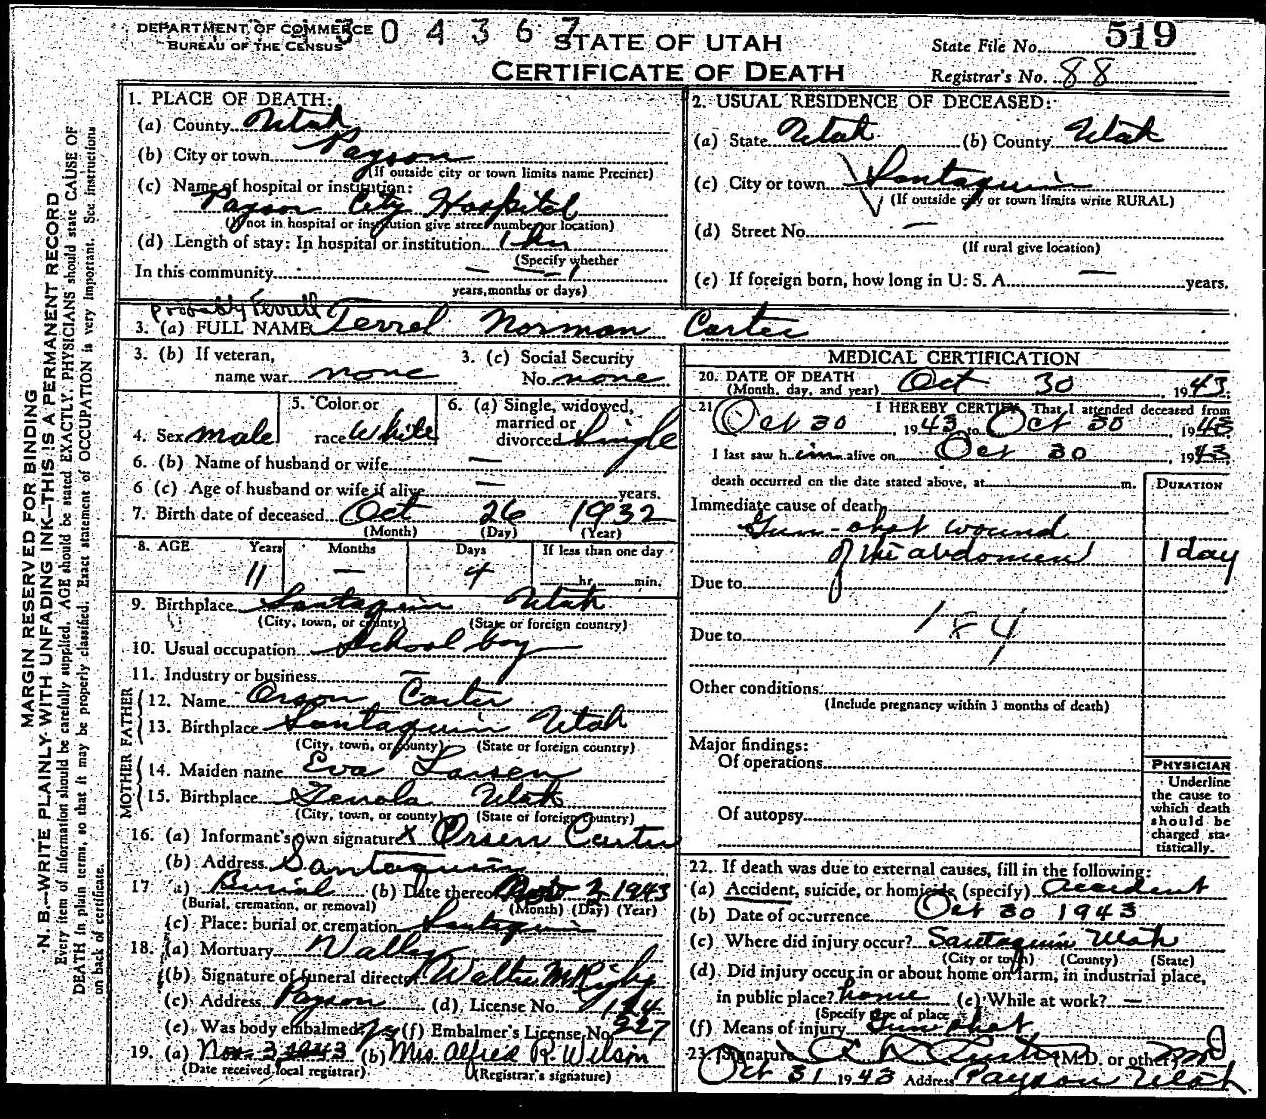 DEPARTMENT OF COMMERCE
BUREAU OF THE CENSUS
304367
STATE OF UTAH
CERTIFICATE OF DEATH
State File No. 519
Registrar's No. 88
MARGIN RESERVED FOR BINDING
N. B.—WRITE PLAINLY WITH UNFADING INK—THIS IS A PERMANENT RECORD
Every item of information should be carefully supplied. AGE should be stated EXACTLY. PHYSICIANS should state CAUSE OF
DEATH in plain terms, so that it may be properly classified. Exact statement of OCCUPATION is very important. See instructions
on back of certificate.
1. PLACE OF DEATH:
(a) County Utah
(b) City or town Payson
(If outside city or town limits name Precinct)
(c) Name of hospital or institution:
Payson City Hospital
(If not in hospital or institution give street number or location)
(d) Length of stay: In hospital or institution 1 hr
(Specify whether
In this community — — 1
years, months or days)
2. USUAL RESIDENCE OF DECEASED:
(a) State Utah (b) County Utah
(c) City or town Santaquin
(If outside city or town limits write RURAL)
(d) Street No. —
(If rural give location)
(e) If foreign born, how long in U. S. A. — years.
probably Ferrell
3. (a) FULL NAME Terrel Norman Carter
3. (b) If veteran, name war none
3. (c) Social Security No. none
4. Sex male
5. Color or race White
6. (a) Single, widowed, married or divorced Single
6. (b) Name of husband or wife —
6 (c) Age of husband or wife if alive — years.
7. Birth date of deceased Oct 26 1932
(Month) (Day) (Year)
8. AGE Years Months Days If less than one day
11 — 4 hr. min.
9. Birthplace Santaquin Utah
(City, town, or county) (State or foreign country)
10. Usual occupation School boy
11. Industry or business —
FATHER
12. Name Orson Carter
13. Birthplace Santaquin Utah
(City, town, or county) (State or foreign country)
MOTHER
14. Maiden name Eva Larsen
15. Birthplace Genola Utah
(City, town, or county) (State or foreign country)
16. (a) Informant's own signature X Orsen Carter
(b) Address Santaquin
17 (a) Burial (b) Date thereof Nov 2 1943
(Burial, cremation, or removal) (Month) (Day) (Year)
(c) Place: burial or cremation Santaquin
18. (a) Mortuary Valley
(b) Signature of funeral director Walter M Rigby
(c) Address Payson (d) License No. 164
(e) Was body embalmed? yes (f) Embalmer's License No. 227
19. (a) Nov. 3 1943 (b) Mrs. Alfred R. Wilson
(Date received local registrar) (Registrar's signature)
MEDICAL CERTIFICATION
20. DATE OF DEATH
(Month, day, and year) Oct 30 1943
21. I HEREBY CERTIFY, That I attended deceased from
Oct 30, 1943 to Oct 30, 1943
I last saw him alive on Oct 30, 1943
death occurred on the date stated above, at m.
DURATION
Immediate cause of death
Gun-shot wound
of the abdomen 1 day
Due to
Due to 184
Other conditions
(Include pregnancy within 3 months of death)
Major findings:
Of operations
Of autopsy
PHYSICIAN
Underline
the cause to
which death
should be
charged sta-
tistically.
22. If death was due to external causes, fill in the following:
(a) Accident, suicide, or homicide (specify) accident
(b) Date of occurrence Oct 30 1943
(c) Where did injury occur? Santaquin Utah
(City or town) (County) (State)
(d) Did injury occur in or about home on farm, in industrial place,
in public place? home (e) While at work? —
(Specify type of place
(f) Means of injury Gun shot
23. Signature (M.D. or other) MD
Oct 31 1943 Address Payson Utah